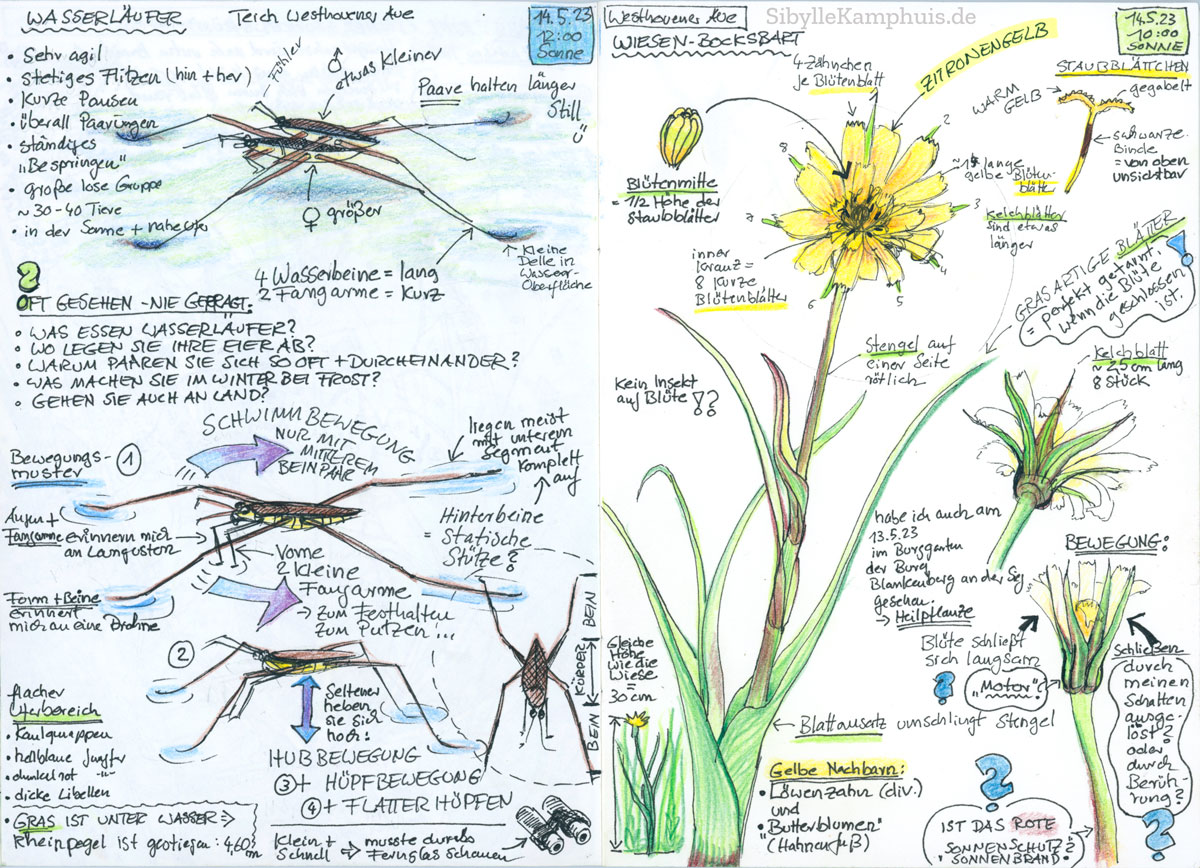 WASSERLÄUFER
Teich Westhovener Aue
14.5.23
12:00
Sonne
• Sehr agil
• stetiges Flitzen (hin + her)
• Kurze Pausen
• überall Paarungen
• ständiges
"Bespringen"
• große lose Gruppe
~ 30-40 Tiere
• in der Sonne + nahe Ufer
Fühler
♂
etwas kleiner
Paare halten länger
Still
♀ größer
4 Wasserbeine = lang
2 Fangarme = kurz
Kleine
Delle in
Wasser-
Oberfläche
?
OFT GESEHEN - NIE GEFRAGT:
○ WAS ESSEN WASSERLÄUFER?
○ WO LEGEN SIE IHRE EIER AB?
○ WARUM PAAREN SIE SICH SO OFT + DURCHEINANDER?
○ WAS MACHEN SIE IM WINTER BEI FROST?
○ GEHEN SIE AUCH AN LAND?
Bewegungs-
muster
1
SCHWIMMBEWEGUNG
NUR MIT
MITTLEREM
BEINPAAR
liegen meist
mit unterem
Segment
komplett
auf
Augen +
Fangarme erinnern mich
an Langusten
Hinterbeine
= Statische
Stütze?
Vorne
2 kleine
Fangarme
→ zum Festhalten
zum Putzen...
Form + Beine
erinnert
mich an eine Drohne
2
Seltener
heben
sie sich
hoch:
HUBBEWEGUNG
3 + HÜPFBEWEGUNG
4 + FLATTER HÜPFEN
BEIN
KÖRPER
BEIN
flacher
Uferbereich
• Kaulquappen
• hellblaue Jungfer
• dunkelrot -"-
• dicke Libellen
• GRAS IST UNTER WASSER ⇒
Rheinpegel ist gestiegen: 4,60 m
Klein +
Schnell ⇒ musste durchs
Fernglas schauen
Westhovener Aue
SibylleKamphuis.de
14.5.23
10:00
SONNE
WIESEN-BOCKSBART
4 Zähnchen
je Blütenblatt
ZITRONENGELB
STAUBBLÄTTCHEN
WARM
GELB
gegabelt
schwarze
Binde
= von oben
unsichtbar
Blütenmitte
= 1/2 Höhe der
Staubblätter
1
2
3
4
5
6
7
8
lange
gelbe Blüten-
blätter
Kelchblätter
sind etwas
länger
inner
Kranz =
8 kurze
Blütenblätter
GRASARTIGE BLÄTTER
= perfekt getarnt,
wenn die Blüte
geschlossen
ist.
!
Stengel auf
einer Seite
rötlich
Kelchblatt
~ 2,5 cm lang
8 Stück
Kein Insekt
auf Blüte !?
habe ich auch am
13.5.23
im Burggarten
der Burg
Blankenberg an der Sieg
gesehen.
→ Heilpflanze
BEWEGUNG:
Blüte schließt
sich langsam
?
"Motor"?
Schließen
durch
meinen
Schatten
ausge-
löst?
oder
durch
Berüh-
rung?
?
Gleiche
Höhe
wie die
Wiese
=
30cm
Blattansatz umschlingt Stengel
Gelbe Nachbarn:
• Löwenzahn (div.)
und
• "Butterblumen"
(Hahnenfuß)
?
IST DAS ROTE
SONNENSCHUTZ?
SONNENBRAND?